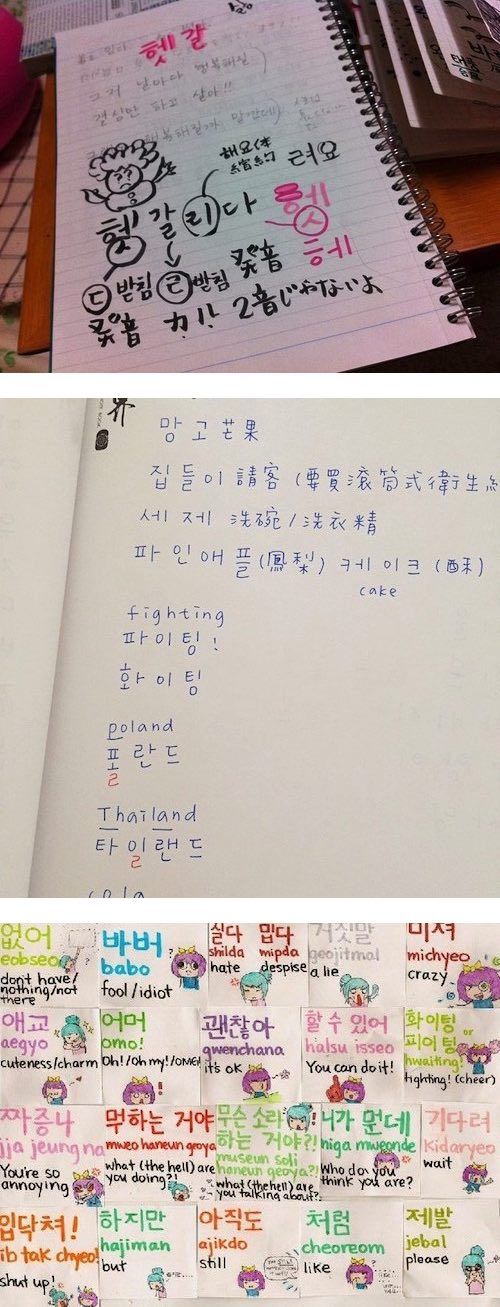 헷갈
그저 날마다 행복해질
결심만 하고 살아!!
행복해질까
해요体
縮約 려요
헷갈리다
헤
ㄷ받침 ㄹ받침 発音
発音 カ!! 2音じゃないよ
망고 芒果
집들이 請客 (要買滾筒式衛生紙
세제 洗碗/洗衣精
파인애플(鳳梨) 케이크 (酥)
cake
fighting
파이팅!
화이팅
poland
폴란드
ㄹ
Thailand
타일랜드
ㄹ
cola
없어
eobseo
dont have/
nothing/not
there
바버
babo
fool/idiot
싫다 밉다
shilda mipda
hate despise
거짓말
geojitmal
a lie
미쳐
michyeo
crazy
애교
aegyo
cuteness/charm
어머
omo!
Oh!/oh my!/OMG!
괜찮아
gwenchana
it's ok
할 수 있어
halsu isseo
You can do it!
화이팅 or
파이팅
hwaiting!
fighting! (cheer)
짜증나
jja jeung na
You're so
annoying
뭐하는 거야
mweo haneun geoya
what (the hell) are
you doing?!
무슨 소리
하는 거야?!
museun soli
haneun geoya?!
what (the hell) are
you talking about?!
니가 뭔데
niga mweonde
Who do you
think you are?
기다려
kidaryeo
wait
입닥쳐!
ib tak chyeo!
shut up!
하지만
hajiman
but
아직도
ajikdo
still
처럼
cheoreom
like
제발
jebal
please